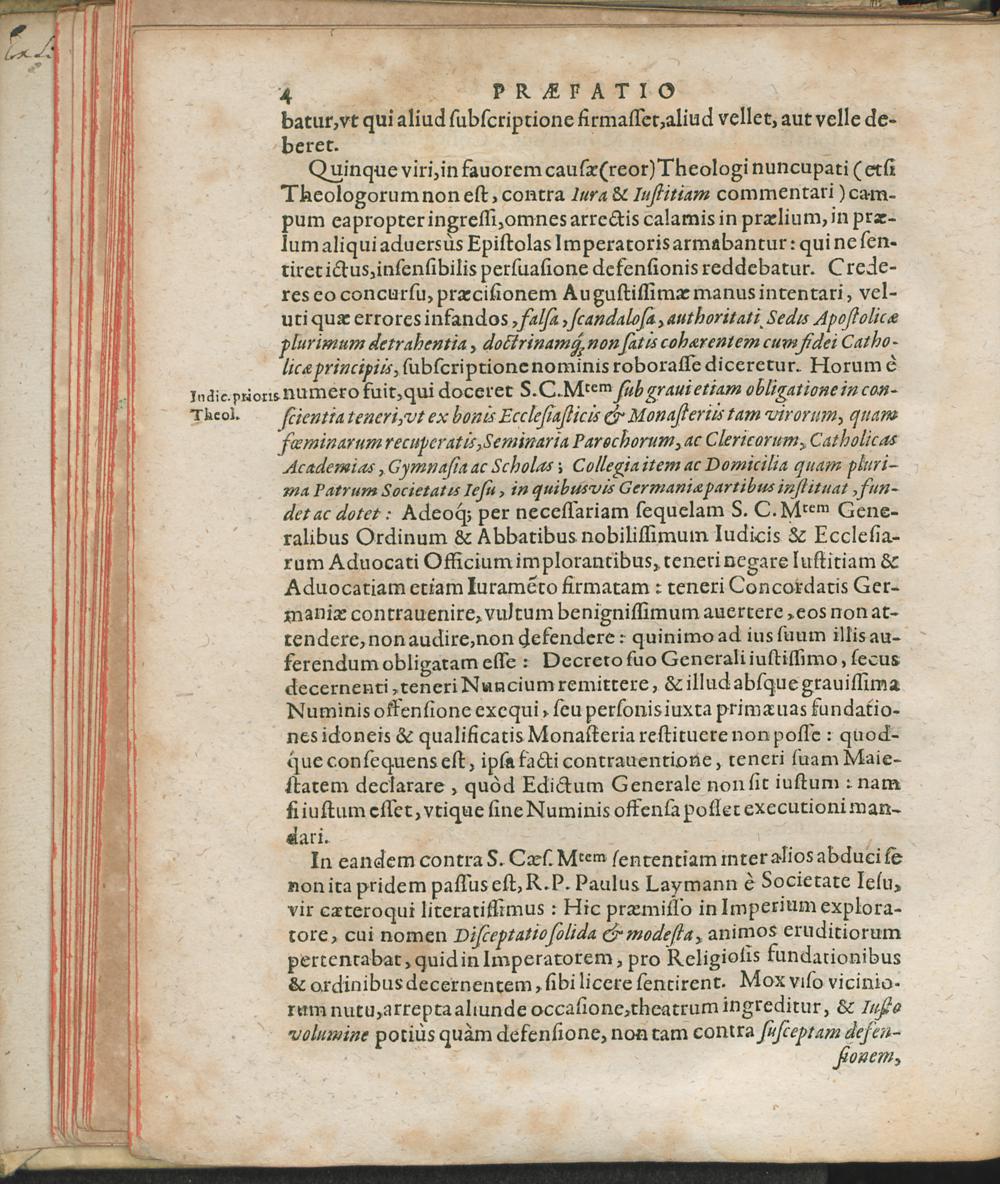 4 PRÆFATIO
batur,vt qui aliud ſubſcriptione firmaſſet,aliud vellet, aut velle de-
beret.
Quinque viri,in fauorem cauſæ(reor)Theologi nuncupati (etſi
Theologorum non eſt, contra Iura & Iuſtitiam commentari) cam-
pum eapropter ingreſſi,omnes arrectis calamis in prælium, in præ-
lum aliqui aduersùs Epiſtolas Imperatoris armabantur: qui ne ſen-
tiret ictus,inſenſibilis perſuaſione defenſionis reddebatur. Crede-
res eo concurſu, præciſionem Auguſtiſſimæ manus intentari, vel-
uti quæ errores infandos, falſa, ſcandaloſa, authoritati Sedis Apoſtolicæ
plurimum detrahentia, doctrinamq́, non ſatis cohærentem cum fidei Catho-
licæ principiis, ſubſcriptione nominis roboraſſe diceretur. Horum è
Indic. prioris
Theol.
numero fuit, qui doceret S.C.Mtem ſub graui etiam obligatione in con-
ſcientia teneri,vt ex bonis Eccleſiaſticis & Monaſteriis tam virorum, quam
fœminarum recuperatis,Seminaria Parochorum, ac Clericorum, Catholicas
Academias, Gymnaſia ac Scholas; Collegia item ac Domicilia quam pluri-
ma Patrum Societatis Ieſu, in quibusvis Germaniæ partibus inſtituat, fun-
det ac dotet: Adeoq́; per neceſſariam ſequelam S. C. Mtem Gene-
ralibus Ordinum & Abbatibus nobiliſſimum Iudicis & Eccleſia-
rum Aduocati Officium implorantibus, teneri negare Iuſtitiam &
Aduocatiam etiam Iuramẽto firmatam: teneri Concordatis Ger-
maniæ contrauenire, vultum benigniſſimum auertere, eos non at-
tendere, non audire,non defendere: quinimo ad ius ſuum illis au-
ferendum obligatam eſſe: Decreto ſuo Generali iuſtiſſimo, ſecus
decernenti, teneri Nuncium remittere, & illud abſque grauiſſima
Numinis offenſione exequi, ſeu perſonis iuxta primæuas fundatio-
nes idoneis & qualificatis Monaſteria reſtituere non poſſe: quod-
que conſequens eſt, ipſa facti contrauentione, teneri ſuam Maie-
ſtatem declarare, quòd Edictum Generale non ſit iuſtum: nam
ſi iuſtum eſſet, vtique ſine Numinis offenſa poſſet executioni man-
dari.
In eandem contra S. Cæſ. Mtem ſententiam inter alios abduci ſe
non ita pridem paſſus eſt, R.P. Paulus Laymann è Societate Ieſu,
vir cæteroqui literatiſſimus: Hic præmiſſo in Imperium explora-
tore, cui nomen Diſceptatio ſolida & modeſta, animos eruditiorum
pertentabat, quid in Imperatorem, pro Religioſis fundationibus
& ordinibus decernentem, ſibi licere ſentirent. Mox viſo vicinio-
rum nutu,arrepta aliunde occaſione,theatrum ingreditur, & Iuſto
volumine potiùs quàm defenſione, non tam contra ſuſceptam defen-
ſionem,